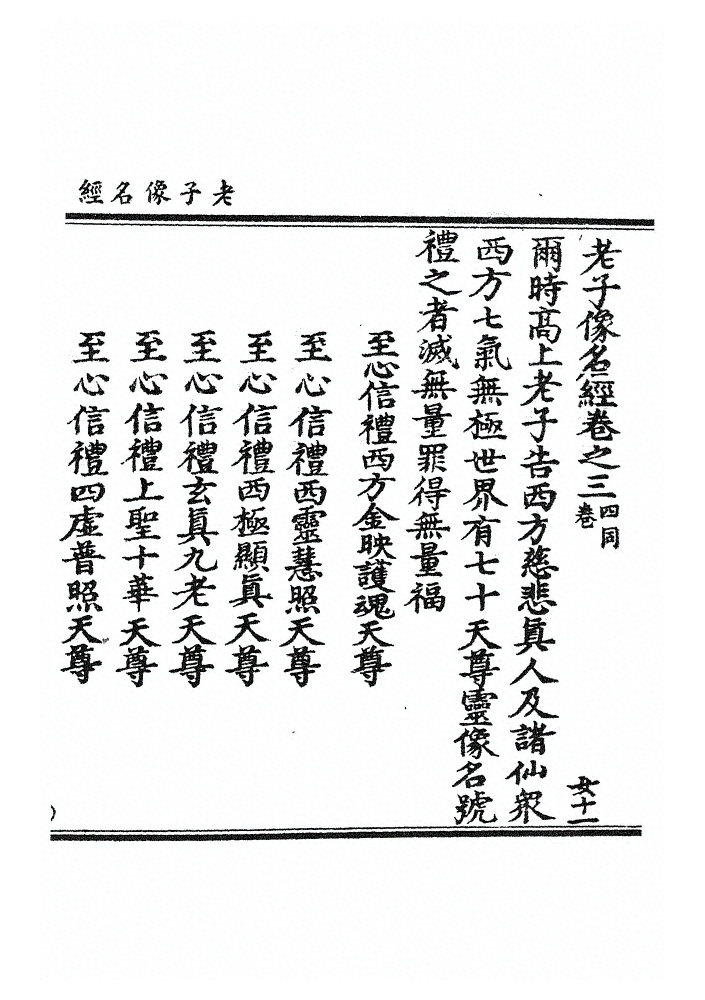 老子像名經
老子像名經卷之三 四同卷 女十一
爾時高上老子告西方慈悲眞人及諸仙衆
西方七氣無極世界有七十天尊靈像名號
禮之者滅無量罪得無量福
至心信禮西方金映護魂天尊
至心信禮西靈慧照天尊
至心信禮西極顯眞天尊
至心信禮玄眞九老天尊
至心信禮上聖十華天尊
至心信禮四虛普照天尊